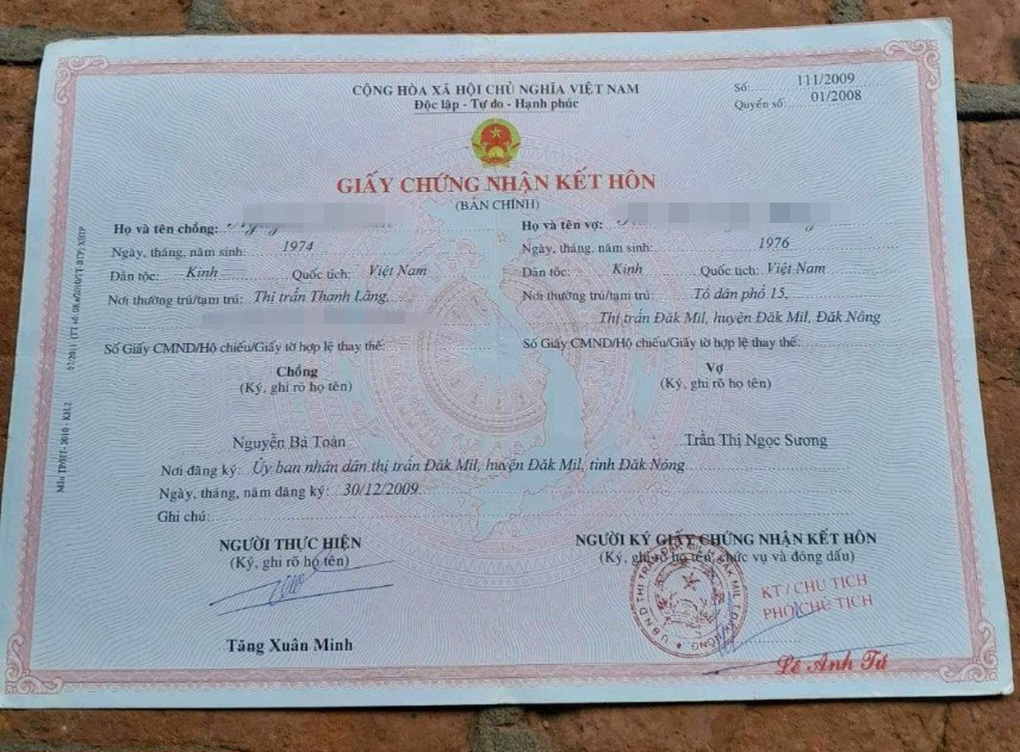 CỘNG HÒA XÃ HỘI CHỦ NGHĨA VIỆT NAM
Độc lập - Tự do - Hạnh phúc
Số: 111/2009
Quyển số: 01/2008
GIẤY CHỨNG NHẬN KẾT HÔN
(BẢN CHÍNH)
Họ và tên chồng:
Họ và tên vợ:
Ngày, tháng, năm sinh: 1974
Ngày, tháng, năm sinh: 1976
Dân tộc: Kinh Quốc tịch: Việt Nam
Dân tộc: Kinh Quốc tịch: Việt Nam
Nơi thường trú/tạm trú: Thị trấn Thanh Lãng,
Nơi thường trú/tạm trú: Tổ dân phố 15,
Thị trấn Đăk Mil, huyện Đăk Mil, Đăk Nông
Số Giấy CMND/Hộ chiếu/Giấy tờ hợp lệ thay thế:
Số Giấy CMND/Hộ chiếu/Giấy tờ hợp lệ thay thế:
Chồng
(Ký, ghi rõ họ tên)
Vợ
(Ký, ghi rõ họ tên)
Nguyễn Bá Toàn
Trần Thị Ngọc Sương
Nơi đăng ký: Ủy ban nhân dân thị trấn Đăk Mil, huyện Đăk Mil, tỉnh Đăk Nông
Ngày, tháng, năm đăng ký: 30/12/2009
Ghi chú:
NGƯỜI THỰC HIỆN
(Ký, ghi rõ họ tên)
NGƯỜI KÝ GIẤY CHỨNG NHẬN KẾT HÔN
(Ký, ghi rõ họ tên, chức vụ và đóng dấu)
KT/ CHỦ TỊCH
PHÓ CHỦ TỊCH
Tăng Xuân Minh
Lê Anh Tú